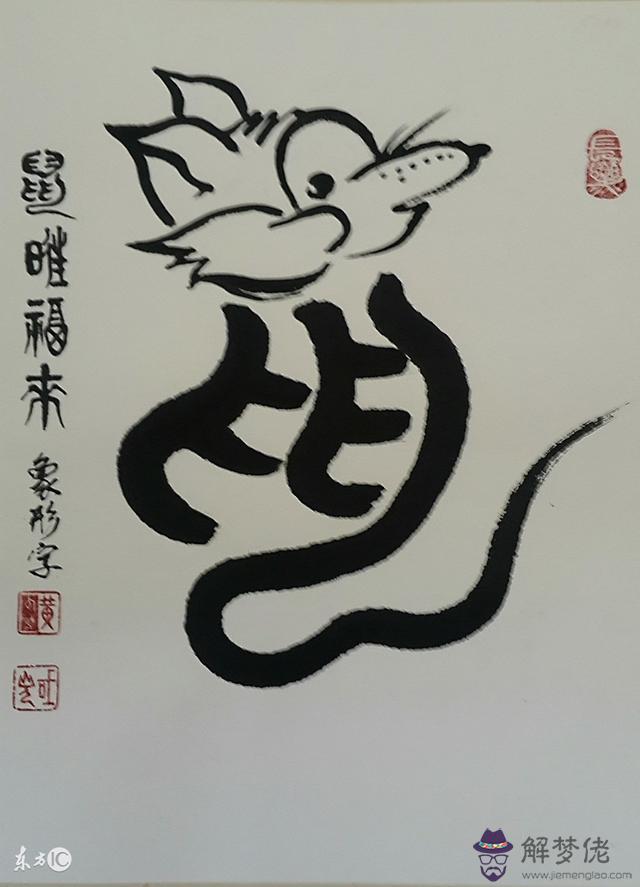 鼠
長樂
鼠福來
象形字
黄
东方IC
解梦佬
www.jiemenglao.com